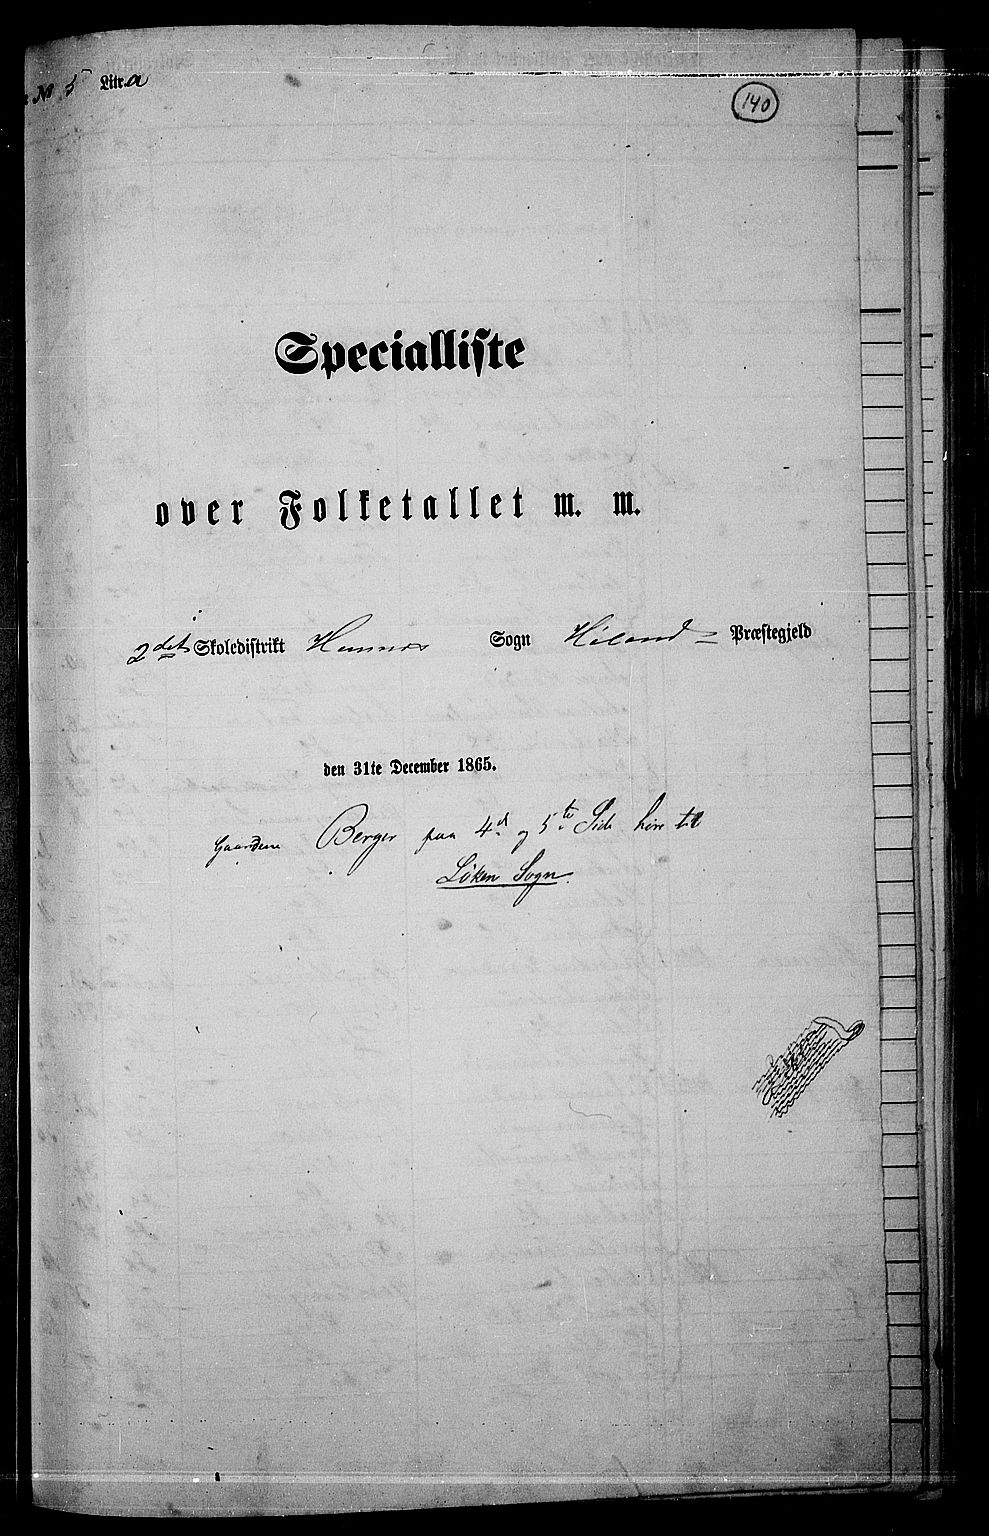 № 5 Litr. a
140
Specialliste
over Folketallet m. m.
2det Skoledistrikt Hemnes Sogn Høland Præstegjeld
den 31te December 1865.
Gaardene Berger paa 4d og 5te Side høre til
Løken Sogn.